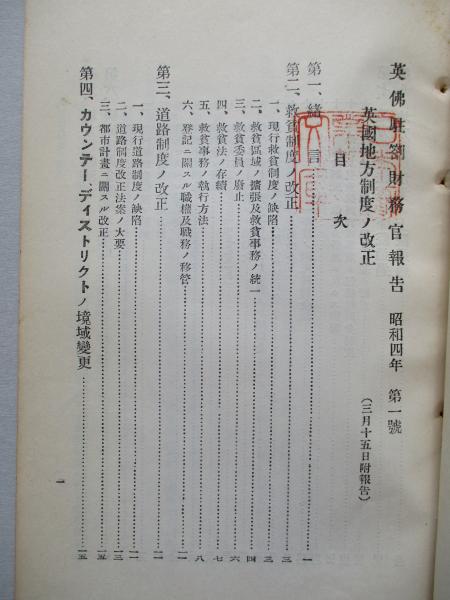 英佛駐劄財務官報告 昭和四年 第一號
英國地方制度ノ改正 (三月十五日附報告)
目次
第一、緒言……一
第二、救貧制度ノ改正……三
一、現行救貧制度ノ缺陷……三
二、救貧區域ノ擴張及救貧事務ノ統一……四
三、救貧委員ノ廢止……六
四、救貧法ノ存續……七
五、救貧事務ノ執行方法……八
六、登記ニ關スル職權及職務ノ移管……一一
第三、道路制度ノ改正……一一
一、現行道路制度ノ缺陷……一一
二、道路制度改正法案ノ大要……一三
三、都市計畫ニ關スル改正……一五
第四、カウンテー、ディストリクトノ境域變更……一五
一